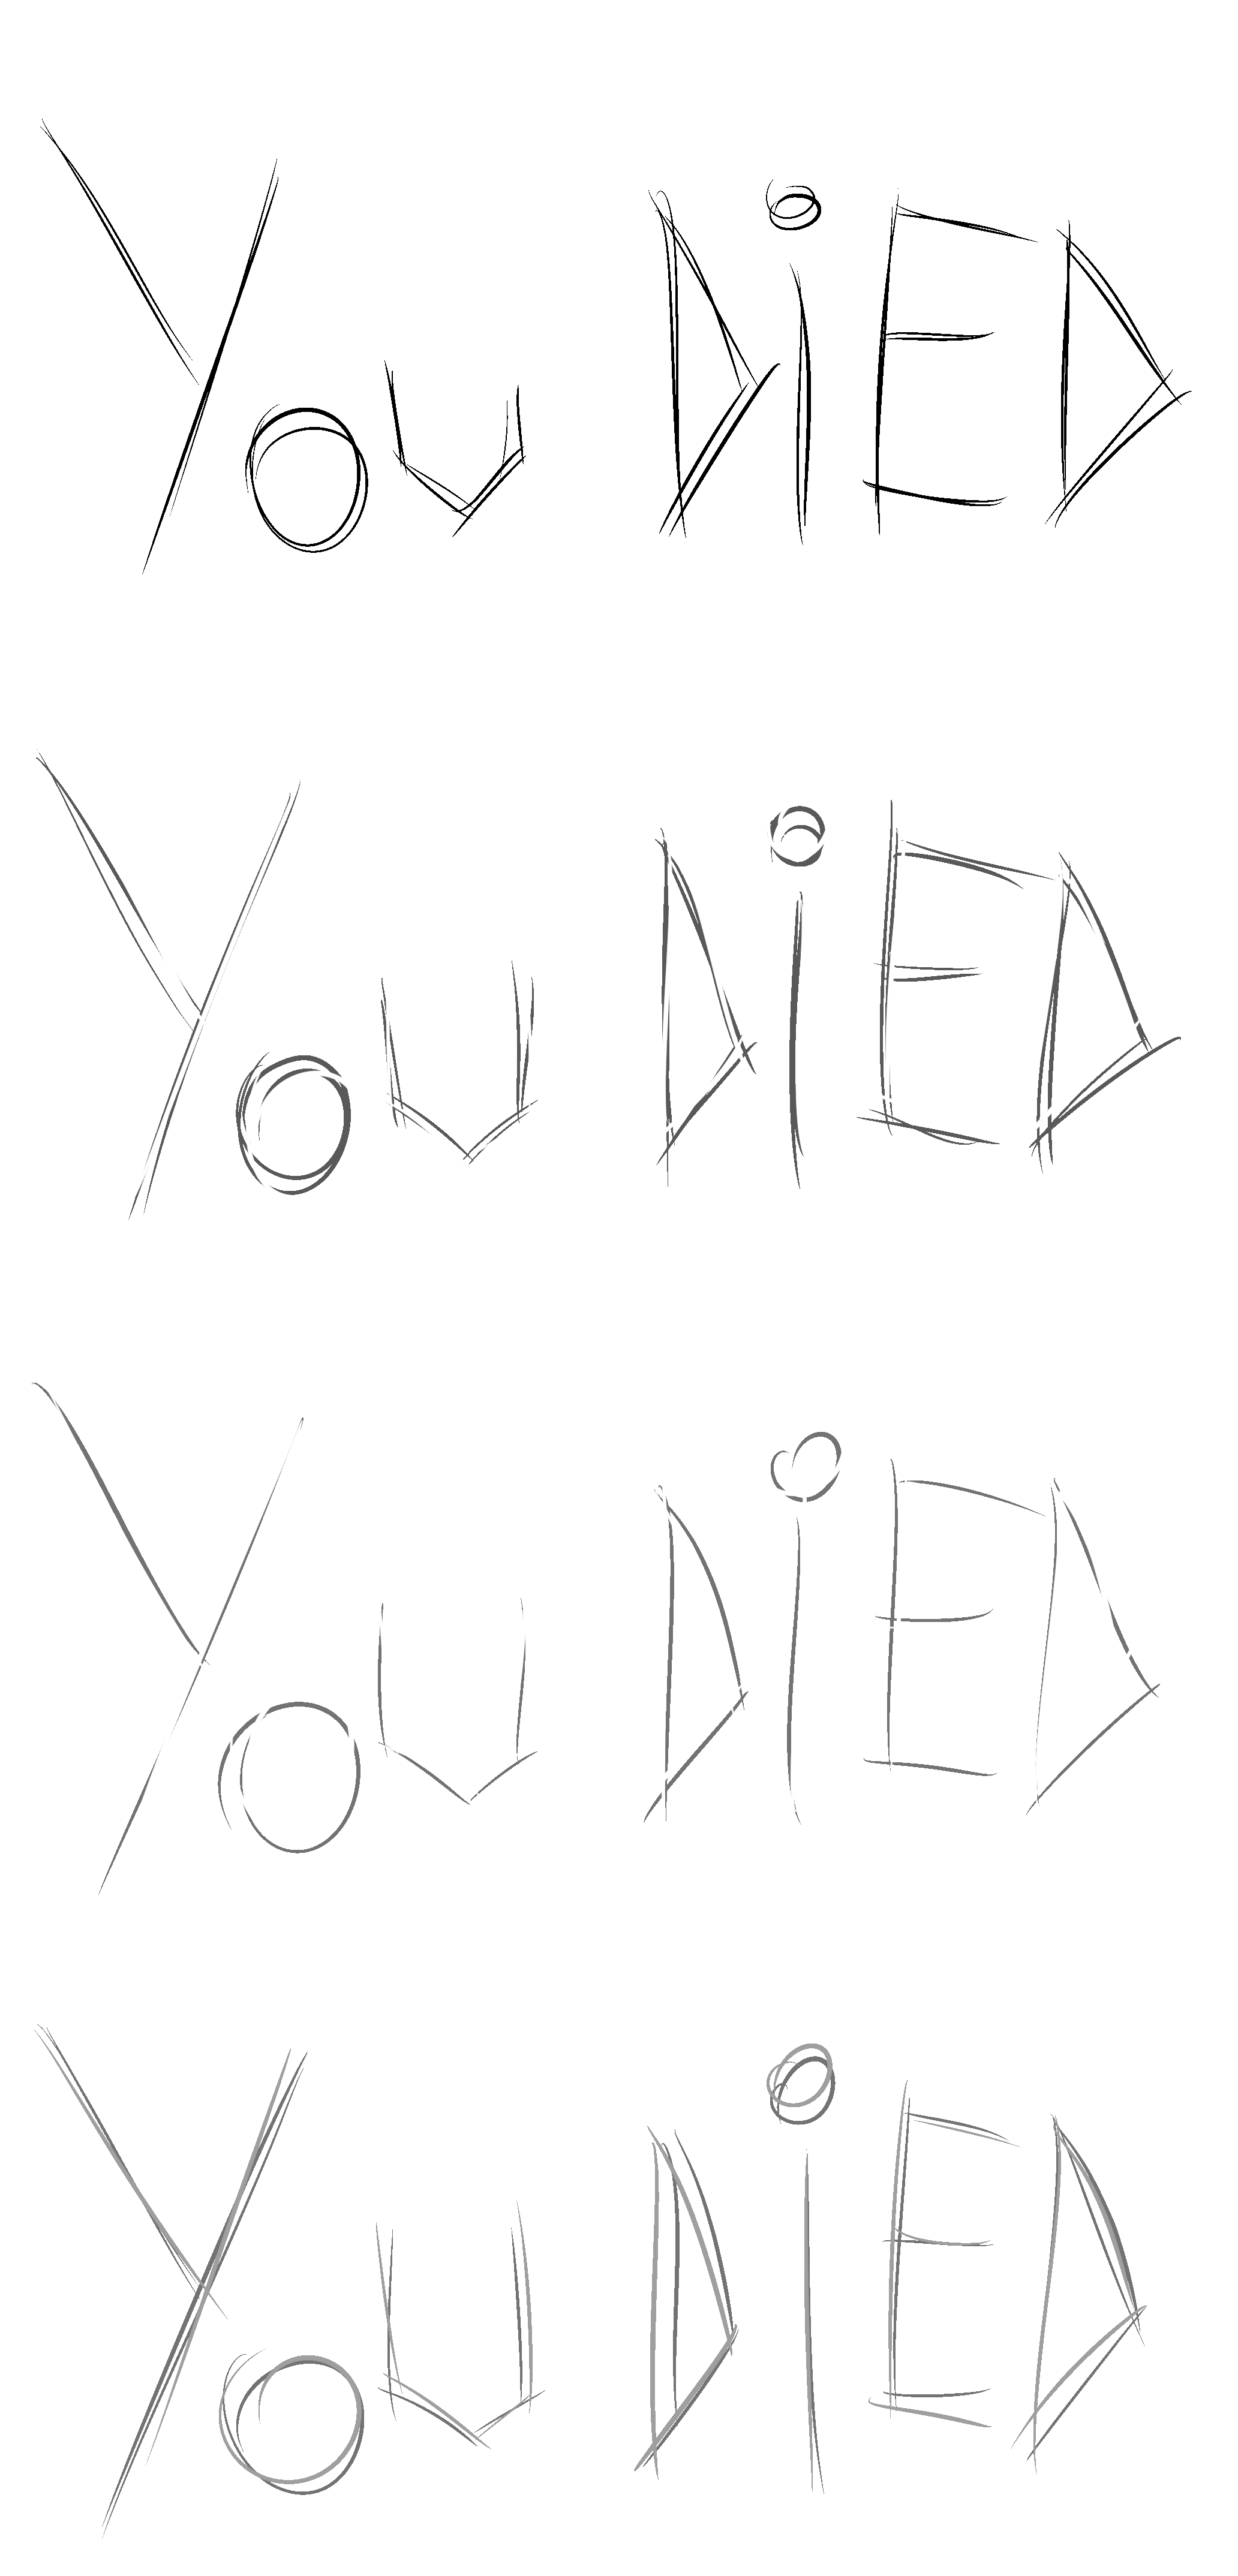 You DiED
You DiED
You DiED
You DiED